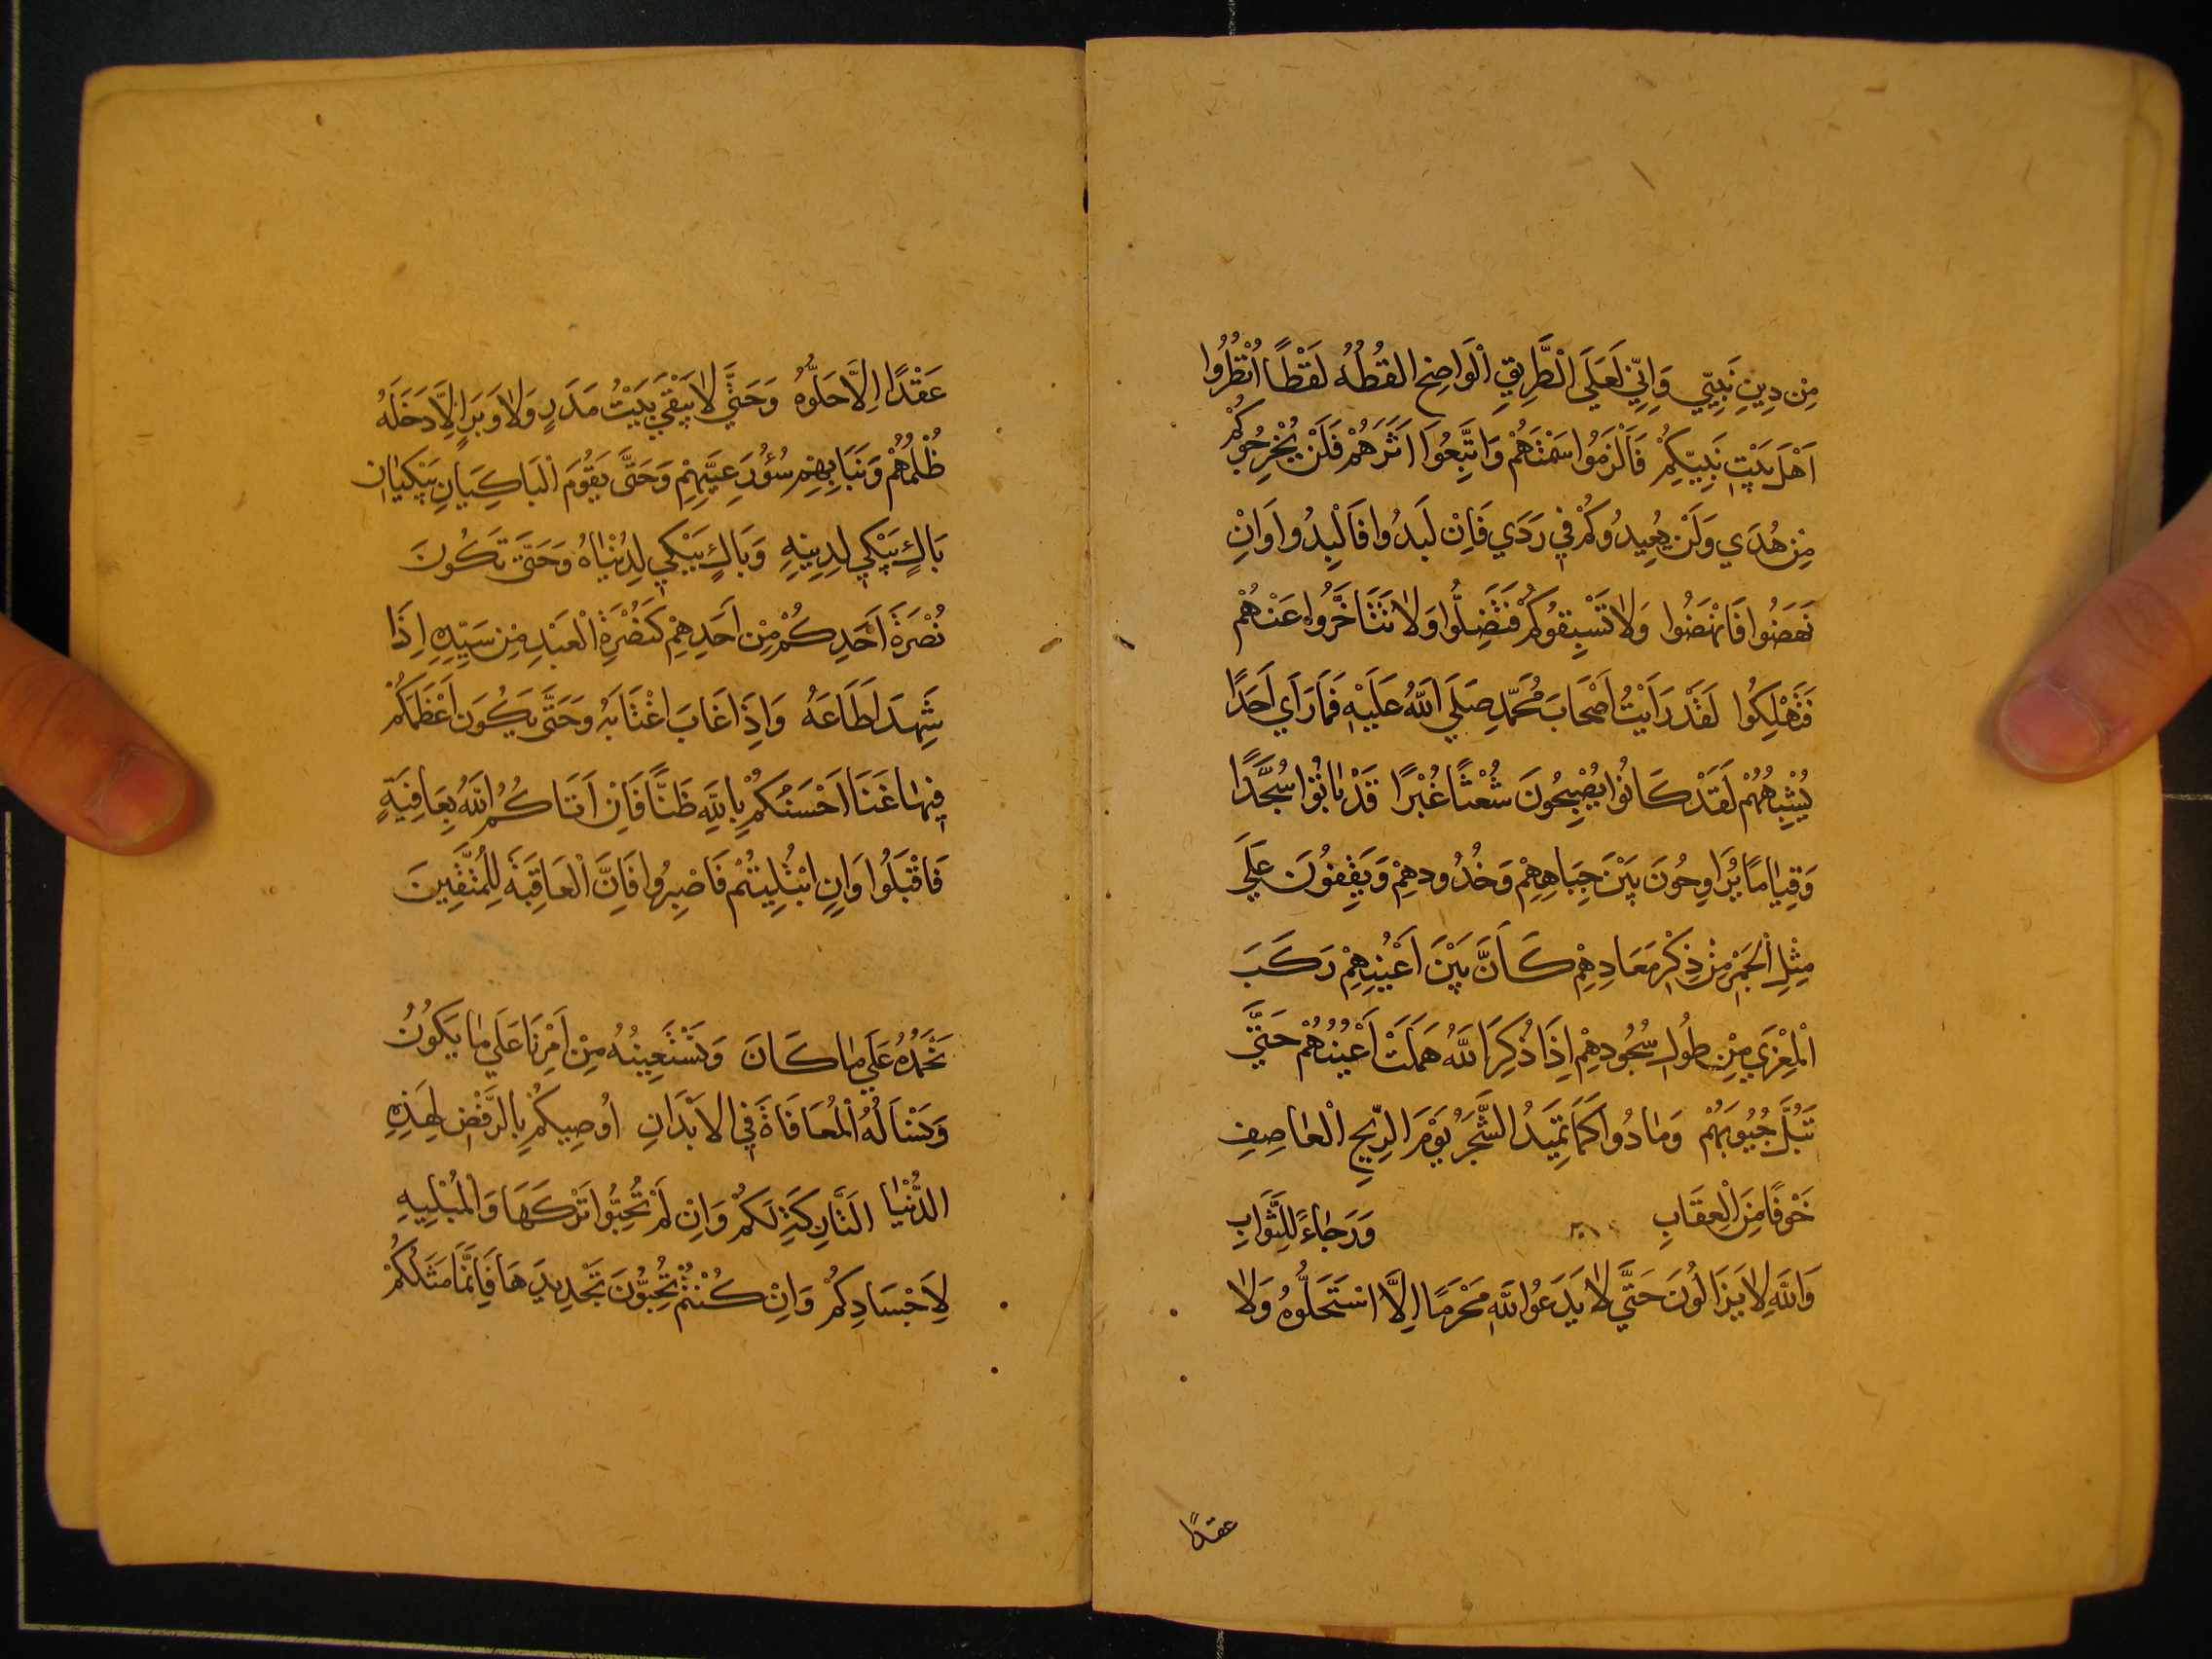 مِن دِينِ نَبِيّي وَاِنِّي لَعَلَي الْطَّرِيقِ الْوَاضِحِ القُطُهُ لَقْطًا اُنْظُرُوا
اَهْلَ بَيْتِ نَبِيّكِمُ فَاَلْزَمُوا سَمْتَهُمْ وَاتَّبِعُوا اَثَرَهُمْ فَلَنْ يُخْرِجُوكُمْ
مِنْ هُدَي وَلَنْ يُعِيدُوكُمْ فِي رَدَي فَاِنْ لَبَدُوا فَالْبِدُوا وَانِ
نَهَضُوا فَانْهَضُوا وَلا تَسْبِقُوكُمْ فَتَضِلُّوا وَلا تَتَاخَّرُوا عَنْهُمْ
فَتَهْلِكُوا لَقَدْ رَاَيْتُ اَصْحَابَ مُحَمّدٍ صَلَي اللهُ عَلَيْهِ فَمَا رَاَي اَحَدًا
يُشْبِهُهُمْ لَقَدْ كَانُوا يُصْبِحُونَ شُعْثًا غُبْرًا قَدْ بَاتُوا سُجَّدًا
وَقِيَامًا يُرَاوِحُونَ بَيْنَ جِبَاهِهِمْ وَخُدُودِهِمْ وَيَقِفُونَ عَلَي
مِثْلِ الْجَمْرِ مِنْ ذِكْرِ مَعَادِهِمْ كَاَنَّ بَيْنَ اَعْيُنِهِمْ رَكَبَ
الْمِعْزَي مِنْ طُولِ سُجُودِهِمْ اِذَا ذُكِرَ اللهُ هَمَلَتْ اَعْيُنُهُمْ حَتَّي
تَبُلَّ جُيُوبَهُمْ وَمَادُوا كَمَا تَمِيَدُ الشَّجَرُ يَوْمَ الرِّيحِ الْعَاصِفِ
خَوْفًا مِنَ الْعِقَابِ وَرَجَاءً لِلثَّوَابِ
وَاللهِ لا يَزَالُونَ حَتَّي لا يَدَعُوا للهِ مَحْرَمًا اِلاَّ اسْتَحَلُّوهُ وَلا
عقدًا
عَقْدًا اِلاَّ حَلُّوهُ وَحَتَّي لا يَبْقَي بَيْتُ مَدَرٍ وَلا وَبَرٍ اِلاَّ دَخَلَهُ
ظُلْمُهُمْ وَنَبَا بِهِمْ سُؤُرَعِيَّهِمْ وَحَتَّى يَقُومَ الْبَاكِيَانِ يَبْكِيَانِ
بَاكٍ يَبْكِي لِدِينِهِ وَبَاكٍ يَبْكِي لِدُنْيَاهُ وَحَتَّى تَكُونَ
نُصْرَةَ اَحَدِكُمْ مِنْ اَحَدِهِمْ كَنُصْرَةِ الْعَبْدِ مِنْ سَيِّدِهِ اِذَا
شَهِدَ اَطَاعَهُ وَاِذَا غَابَ اغْتَابَهُ وَحَتَّى يَكُونَ اَعْظَمَكُمْ
فِيهَا غَنَا اَحْسَنُكُمْ بِاللهِ ظَنًّا فَاِنْ اَتَاكُمُ اللهُ بِعَافِيَةٍ
فَاقْبَلُوا وَاِنِ ابْتُلِيتُمْ فَاصْبِرُوا فَاِنَّ الْعَاقِبَةَ لِلْمُتَّقِينَ
نَحْمَدُهُ عَلَي مَا كَانَ وَنَسْتَعِينُهُ مِنْ اَمْرِنَا عَلَي مَا يَكُونُ
وَنَسْاَلُهُ الْمُعَافَاةَ فِي الاَبْدَانِ اُوصِيكُمْ بِالرَّفْضِ لِهَذِهِ
الدُّنْيَا التَّارِكَةِ لَكُمْ وَاِنْ لَمْ تُحِبُّوا تَرْكَهَا وَالْمُبْلِيهِ
لاَجْسَادِكُمْ وَاِنْ كُنْتُمْ تُحِبُّونَ تَجْدِيدَهَا فَاِنَّمَا مَثَلُكُمْ